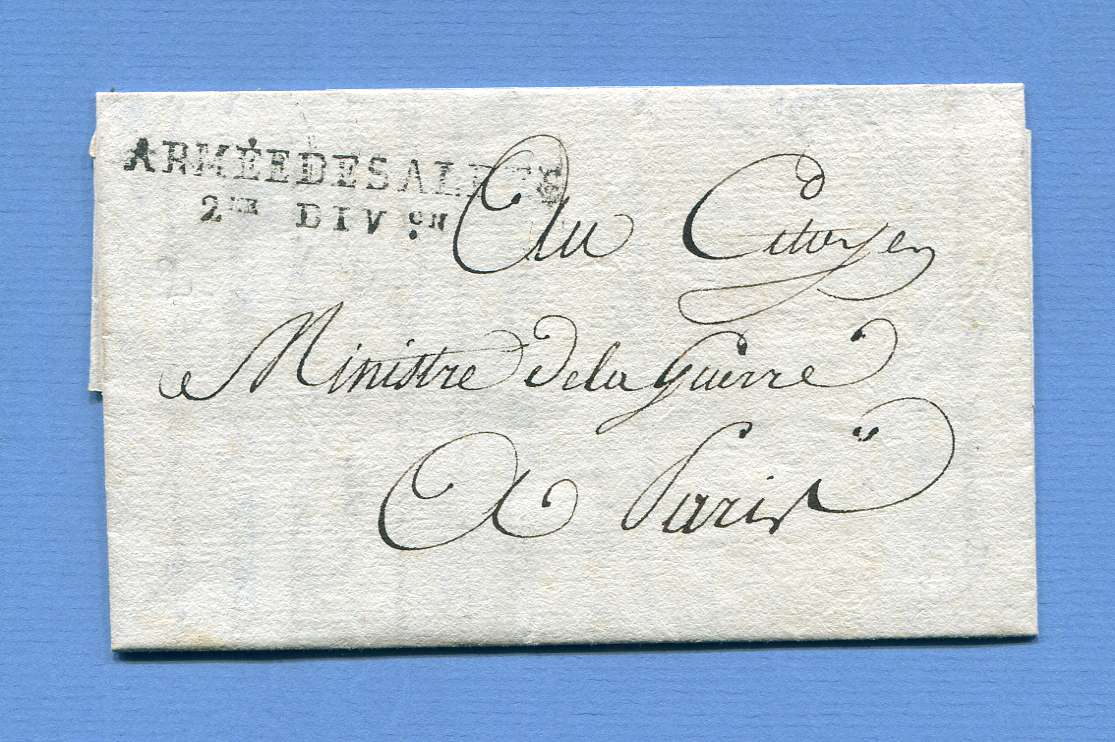 ARMÉE DES ALPES
2ME DIVON
Au Citoyen
Ministre de la Guerre
A Paris